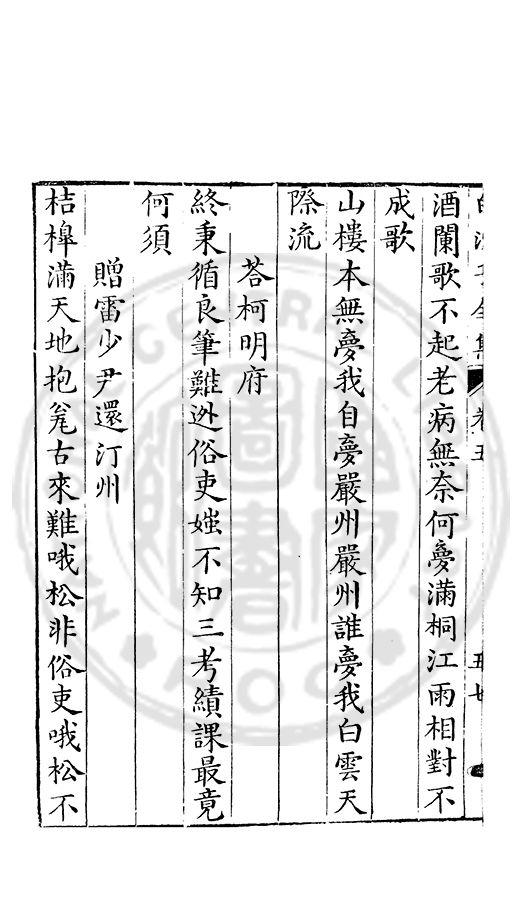 酒闌歌不起老病無奈何夢滿桐江雨相對不
成歌
山樓本無夢我自夢嚴州嚴州誰夢我白雲天
際流
荅柯明府
終秉循良筆難迯俗吏媸不知三考績課最竟
何須
贈雷少尹還汀州
桔槹滿天地抱瓮古來難哦松非俗吏哦松不